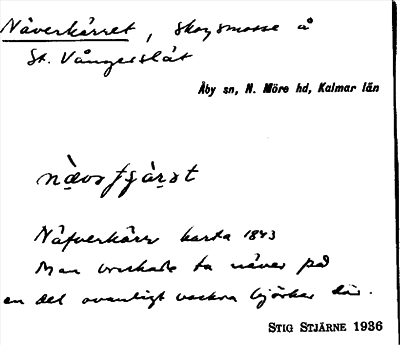 Näverkärret, skogsmosse å
St. Vångerslät
Åby sn, N. Möre hd, Kalmar län
Näfverkärr karta 1843
Man brukade ta näver på
en del ovanligt vackra björkar där.
STIG STJÄRNE 1936